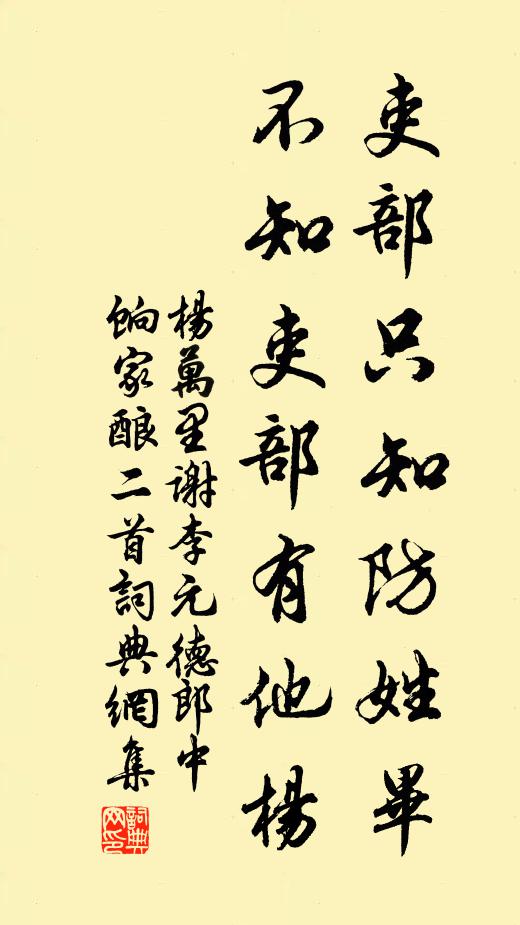 吏部只知防姓畢
不知吏部有他楊
楊萬里謝李元德郎中
餉家酿二首詞典網集
詞典網印